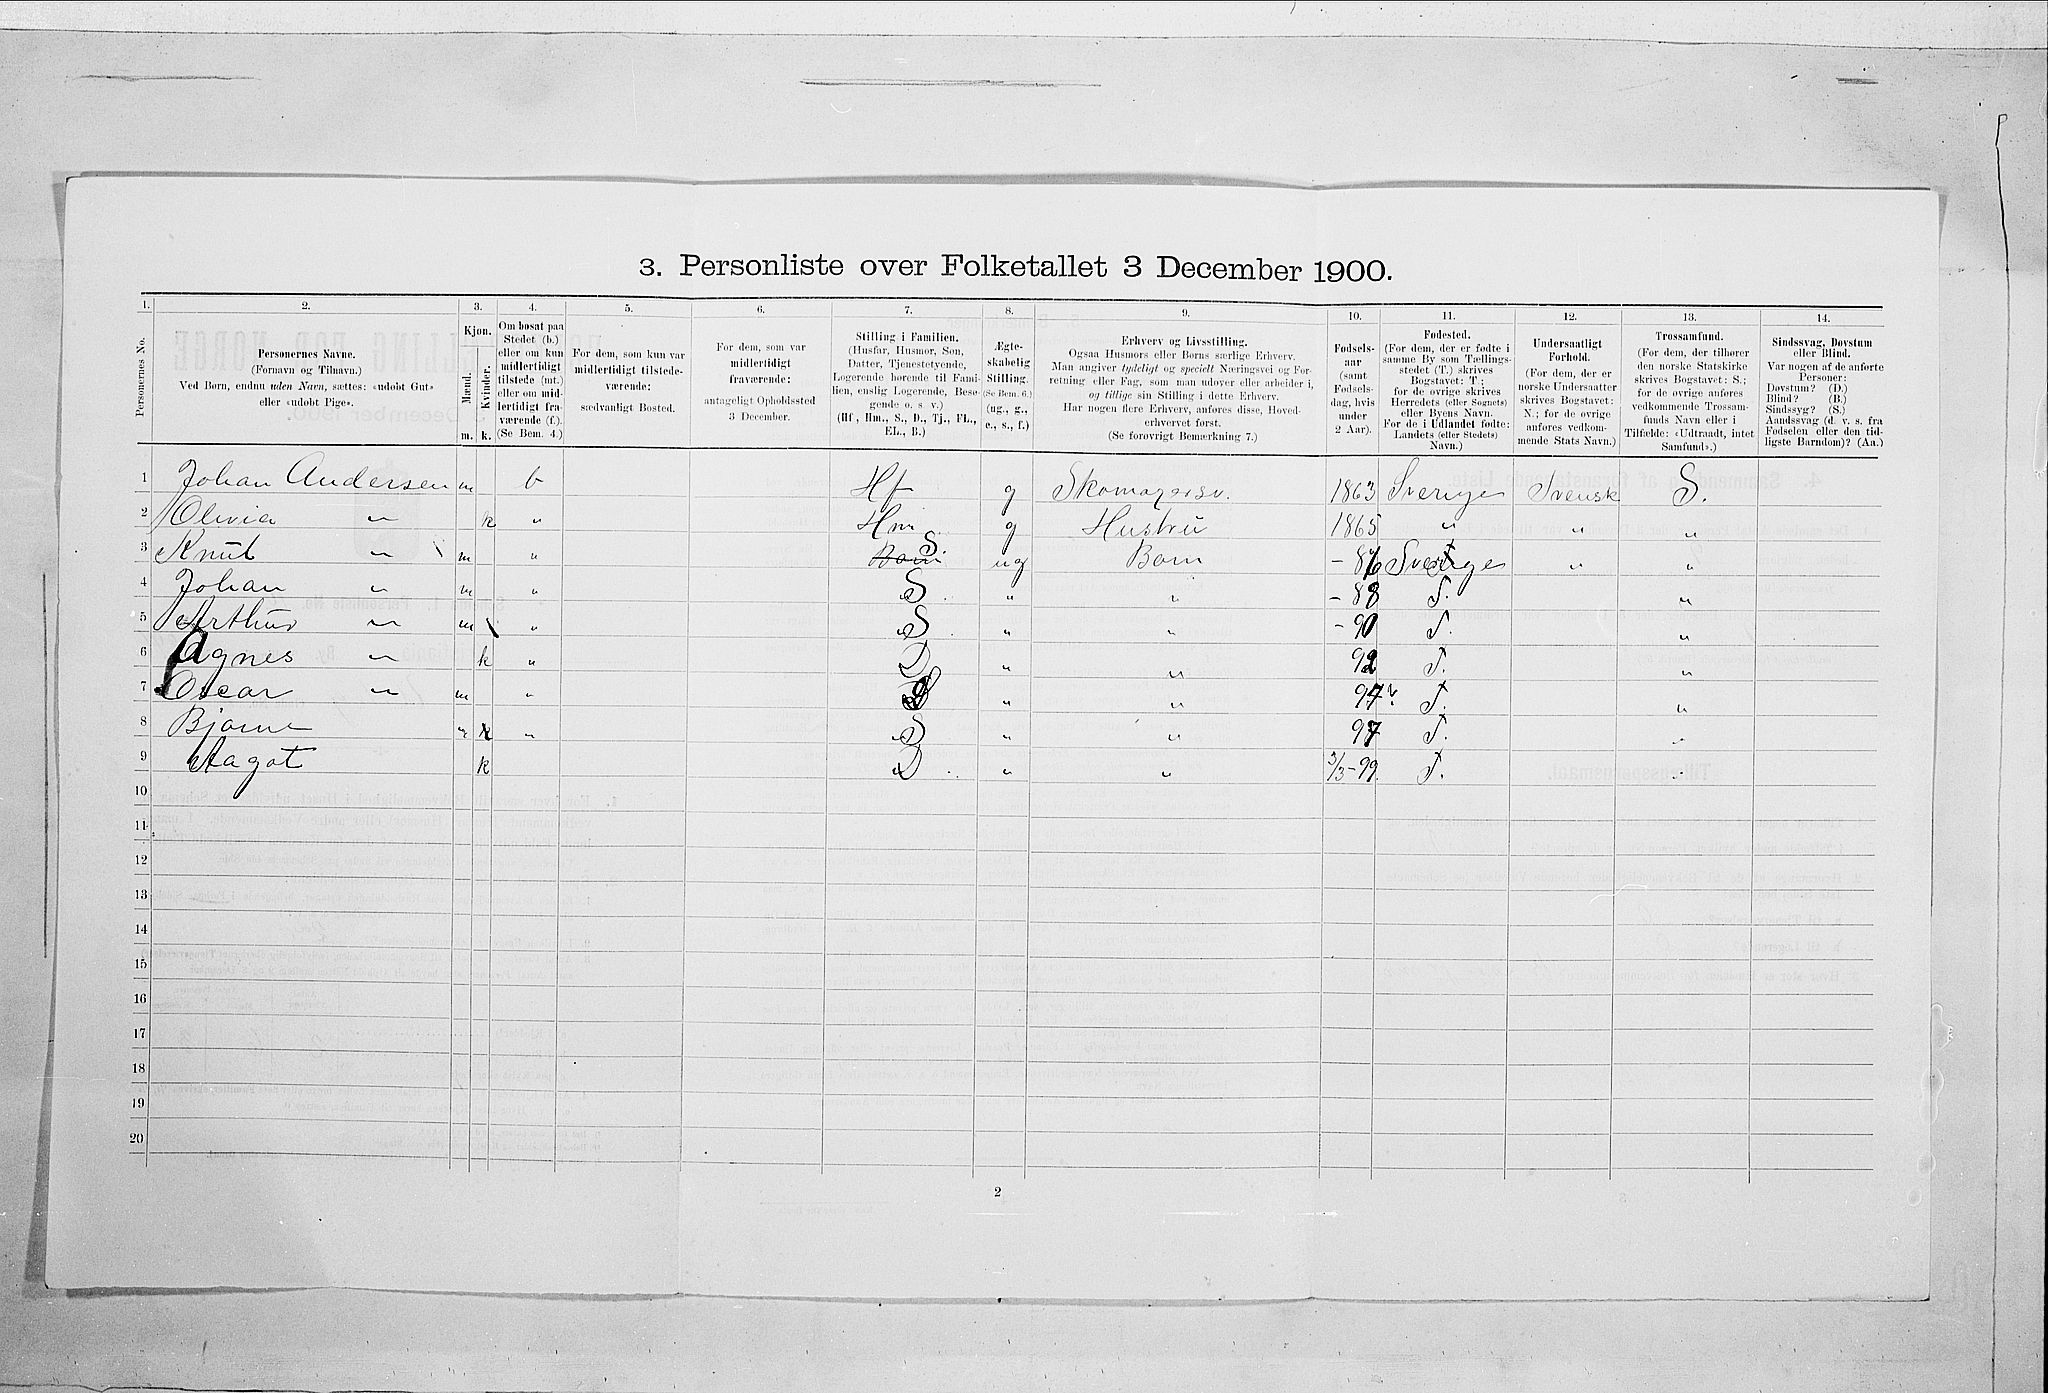 3. Personliste over Folketallet 3 December 1900.
1. 2. 3. 4. 5. 6. 7. 8. 9. 10. 11. 12. 13. 14.
Personernes No.
Personernes Navne.
(Fornavn og Tilnavn.)
Ved Børn, endnu uden Navn, sættes: «udøbt Gut»
eller «udøbt Pige».
Kjøn.
Mænd.
Kvinder.
m. k.
Om bosat paa
Stedet (b.)
eller om kun
midlertidigt
tilstede (mt.)
eller om mid-
lertidigt fra-
værende (f.).
(Se Bem. 4.)
For dem, som kun var
midlertidigt tilstede-
værende:
sædvanligt Bosted.
For dem, som var
midlertidigt
fraværende:
antageligt Opholdssted
3 December.
Stilling i Familien.
(Husfar, Husmor, Søn,
Datter, Tjenestetyende,
Logerende hørende til Fami-
lien, enslig Logerende, Besø-
gende o. s. v.)
(Hf., Hm., S., D., Tj., FL.,
EL., B.)
Ægte-
skabelig
Stilling.
(Se Bem. 6.)
(ug., g.,
e., s., f.)
Erhverv og Livsstilling.
Ogsaa Husmors eller Børns særlige Erhverv.
Man angiver tydeligt og specielt Næringsvei og For-
retning eller Fag, som man udøver eller arbeider i,
og tillige sin Stilling i dette Erhverv.
Har nogen flere Erhverv, anføres disse, Hoved-
erhvervet først.
(Se forøvrigt Bemærkning 7.)
Fødsels-
aar
(samt
Fødsels-
dag, hvis
under
2 Aar).
Fødested.
(For dem, der er fødte i
samme By som Tællings-
stedet (T.) skrives
Bogstavet: T.;
for de øvrige skrives
Herredets (eller Sognets)
eller Byens Navn.
For de i Udlandet fødte:
Landets (eller Stedets)
Navn.)
Undersaatligt
Forhold.
(For dem, der er
norske Undersaatter
skrives Bogstavet:
N.; for de øvrige
anføres vedkom-
mende Stats Navn.)
Trossamfund.
(For dem, der tilhører
den norske Statskirke
skrives Bogstavet: S.;
for de øvrige anføres
vedkommende Trossam-
funds Navn eller i
Tilfælde: «Udtraadt, intet
Samfund».)
Sindssvag, Døvstum
eller Blind.
Var nogen af de anførte
Personer:
Døvstum? (D.)
Blind? (B.)
Sindssyg? (S.)
Aandssvag (d. v. s. fra
Fødselen eller den tid-
ligste Barndom)? (Aa.)
1 Johan Andersen m b Hf g Skomagersv. 1863 Sverige Svensk S.
2 Olivia " k " Hm g Hustru 1865 " " "
3 Knut " m " Barn S. ug Barn - 86 Sverige " "
4 Johan " m " S. " " - 88 T. "
5 Arthur " m " S. " " - 90 T. "
6 Agnes " k " D " " 92 T. "
7 Oscar " m " S " " 94 T. "
8 Bjarne m " S " " 97 T. "
9 Aagot k D " " 3/3-99. T. "
10
11
12
13
14
15
16
17
18
19
20
2